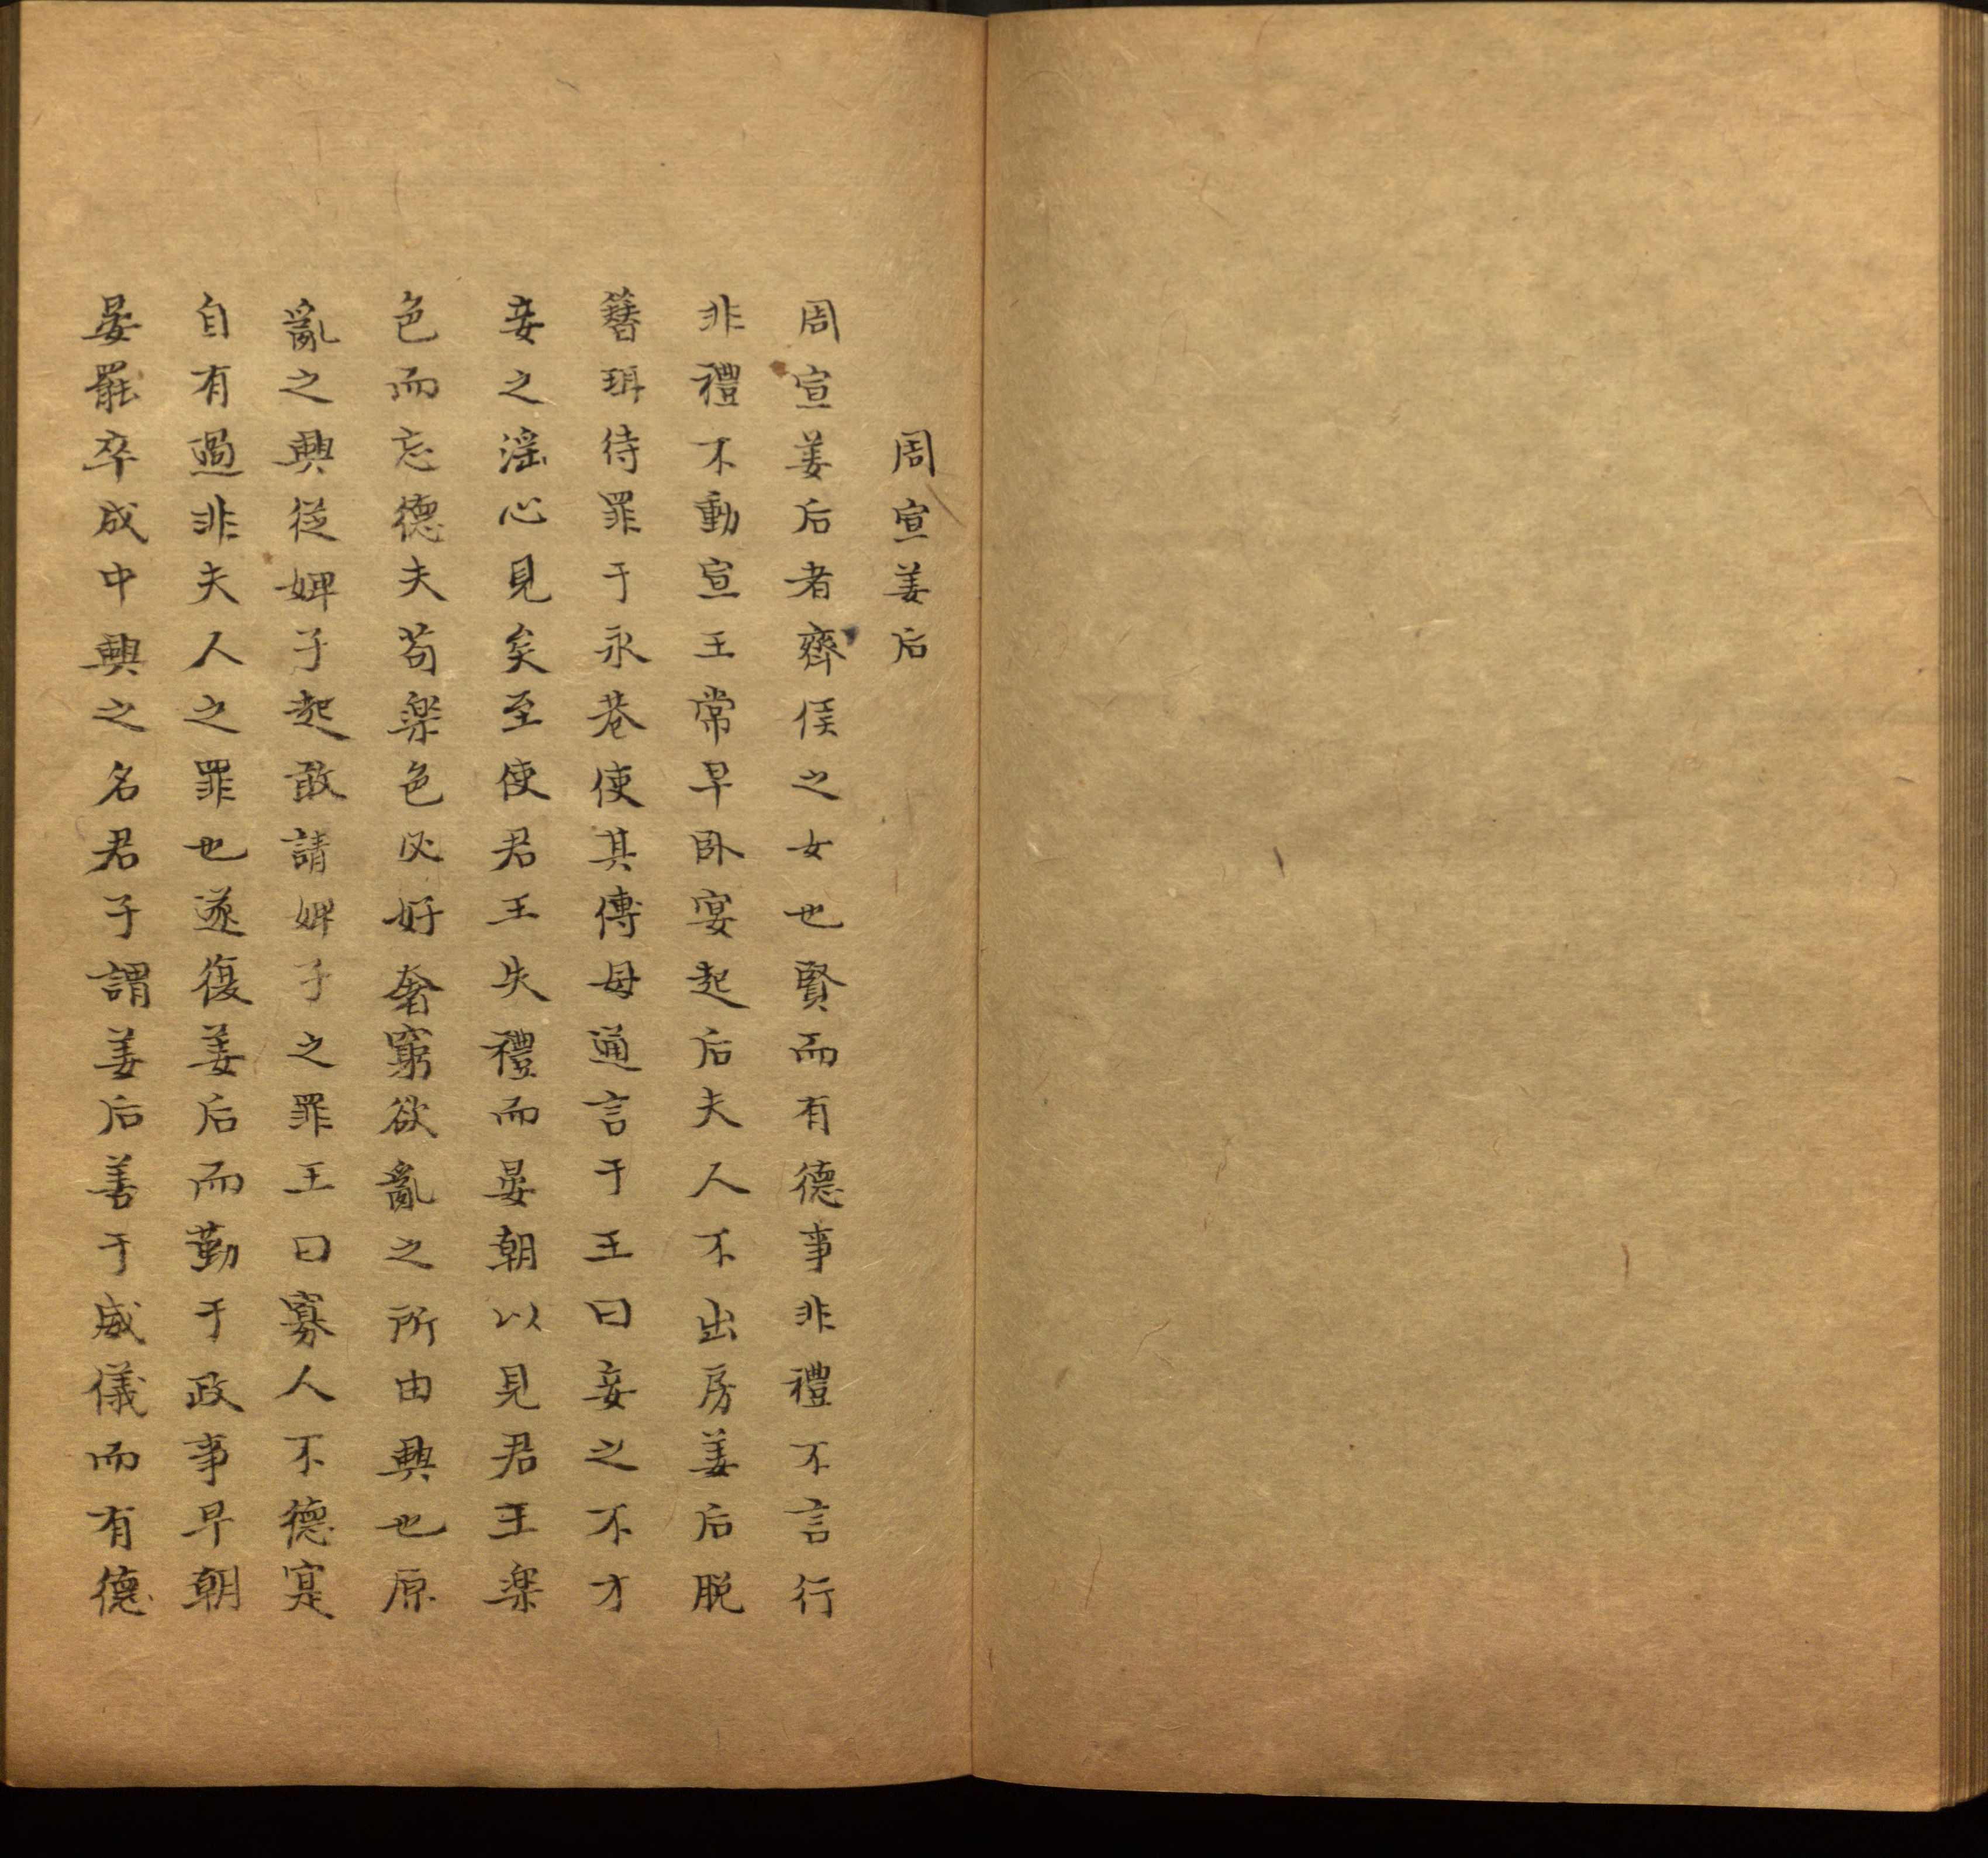 周宣姜后
周宣姜后者齊侯之女也賢而有德事非禮不言行
非禮不動宣王常早卧宴起后夫人不出房姜后脱
簪珥待罪于永巷使其傅母通言于王曰妾之不才
妾之滛心見矣至使君王失禮而晏朝以見君王楽
色而忘德夫苟楽色必好奢窮欲亂之所由興也原
亂之興從婢子起敢請婢子之罪王曰寡人不德寔
自有過非夫人之罪也遂復姜后而勤于政事早朝
晏罷卒成中興之名君子謂姜后善于威儀而有德